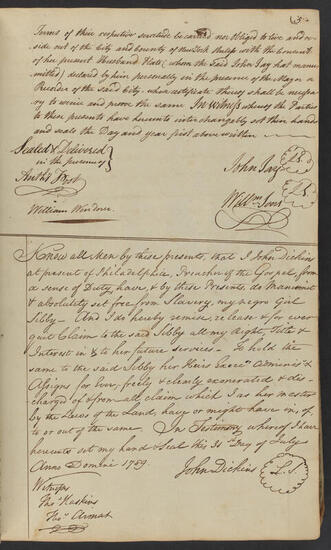 (3
Terms of their respective servitude be carried nor obliged to live and re
side out of the City and County of New York unless with the Consent
of her present Husband Plato (whom the said John Jay hath manu
mitted) declared by him personally in the presence of the Mayor or
Recorder of the said City, whose certificate thereof shall be necessary
to evince and prove the same In Witness whereof the Parties
to these presents have hereunto interchangeably set their hands
and seals the Day and year first above written
Sealed & Delivered
in the presence of
Anthy Post
William Windover
John Jay LS
Willm LS
Know all Men by these presents, that I John Dickins
at present of Philadelphia, Preacher of the Gospel, from
a sense of Duty, have, & by these Presents, do Manumit
& absolutely set free from Slavery, my negro Girl
Sibby - And I do hereby remise, release & for ever
quit Claim to the said Sibby all my Right, Title &
Interest in & to her future services - To hold the
same to the said Sibby her Heirs Execrs Administrs &
Assigns for ever, freely & clearly exonerated & dis-
charged of & from all claim which I as her master
by the Laws of the Land, have or might have in, of,
to or out of the same. In Testimony whereof I have
hereunto set my hand & Seal this 31st Day of July
Anno Domini 1789.
John Dickins L.S.
Witness
Thos Haskins
Thos Armat